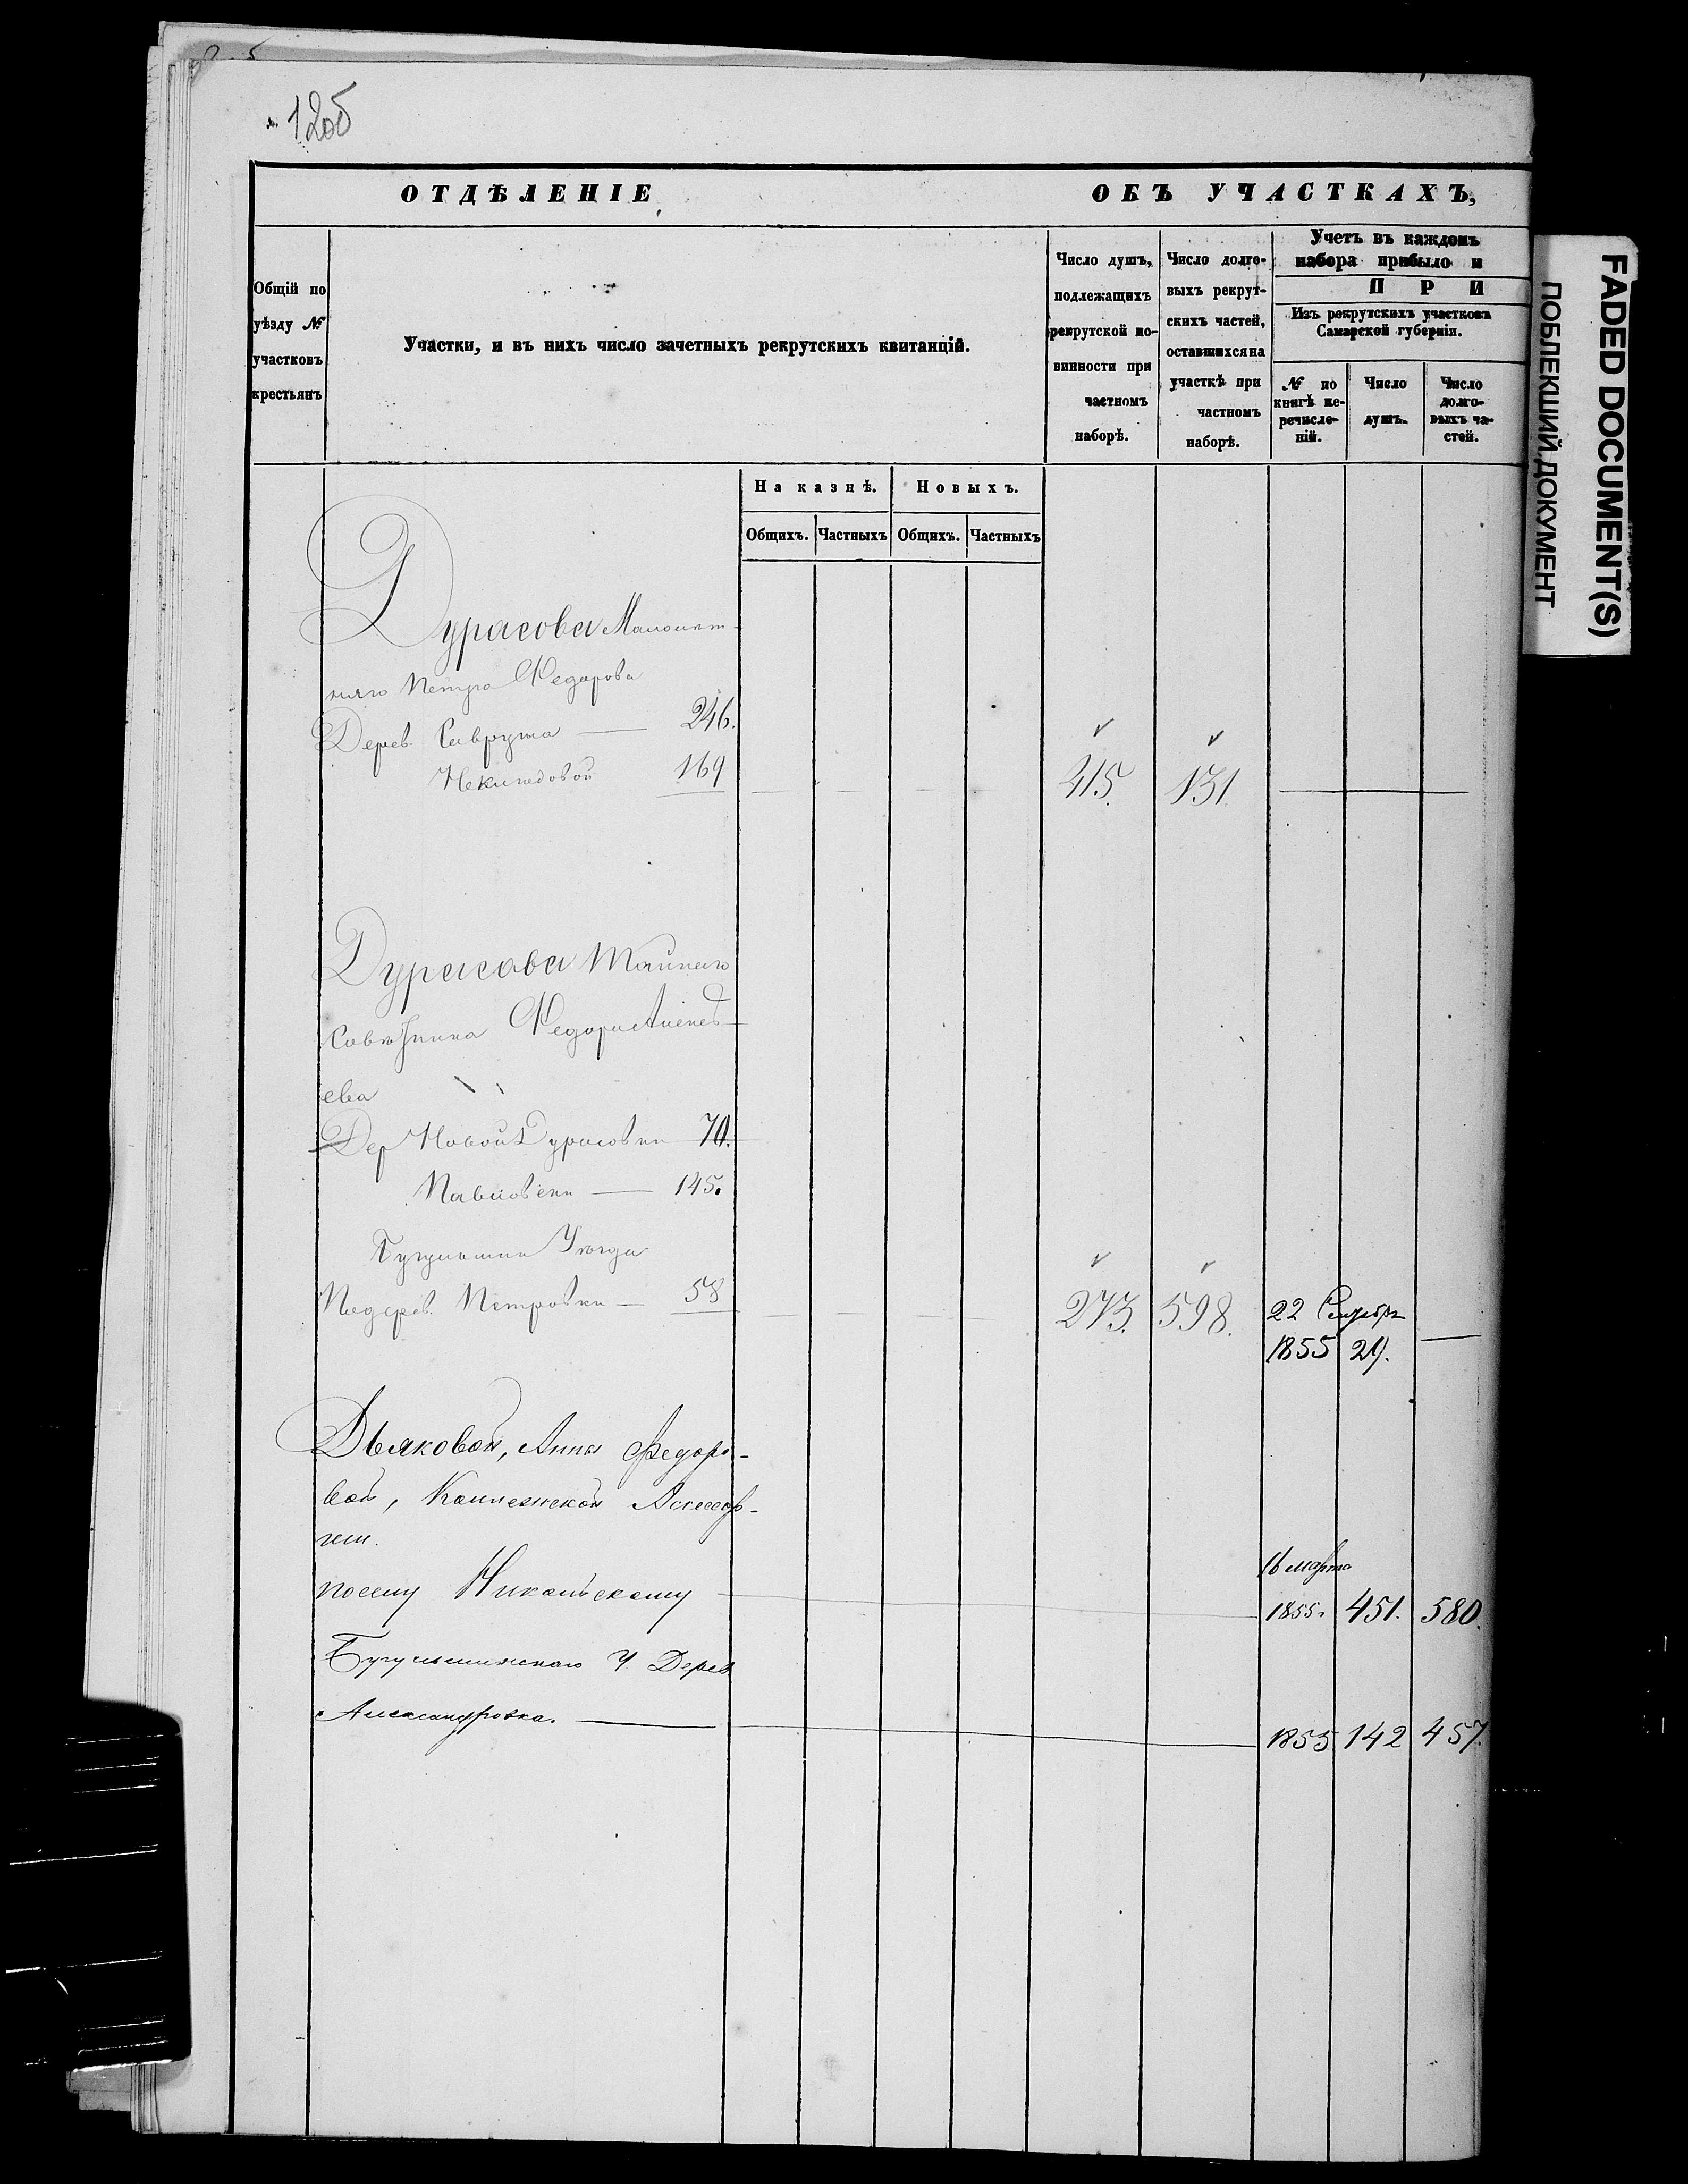 120б
ОТДѢЛЕНІЕ ОБЪ УЧАСТКАХЪ,
Общій по уѣзду № участковъ крестьянъ
Участки, и въ нихъ число зачетныхъ рекрутскихъ квитанцій.
Число душъ, подлежащихъ рекрутской повинности при частномъ наборѣ.
Число долговыхъ рекрутскихъ частей, оставшихся на участкѣ при частномъ наборѣ.
Учетъ въ каждомъ
набора прибыло и
ПРИ
Изъ рекрутскихъ участковъ
Самарской губерніи.
№ по книгѣ перечисленій.
Число душъ.
Число долговыхъ частей.
На казнѣ. Новыхъ.
Общихъ. Частныхъ Общихъ. Частныхъ
Дурасова Малолѣт-
няго Петра Федорова
Дерев. Савруша — 246.
169 415. 131.
Дурасова Тайнаго
Совѣтника Федора Алексѣ-
ева
Дер Новой Дурасовки 70.
Павловки — 145.
Уѣзда
Петровки — 58
273. 598. 22 Сентября
1855 29.
Дьяковой, Анны Федоро-
вой, Коллежской Ассесор-
ши.
16 марта
по селу Никольскому 1855. 451. 580.
Бугульминскаго У. Дерев
Александровка. — 1855 142 457.
FADED DOCUMENT(S)
ПОБЛЕКШИЙ ДОКУМЕНТ